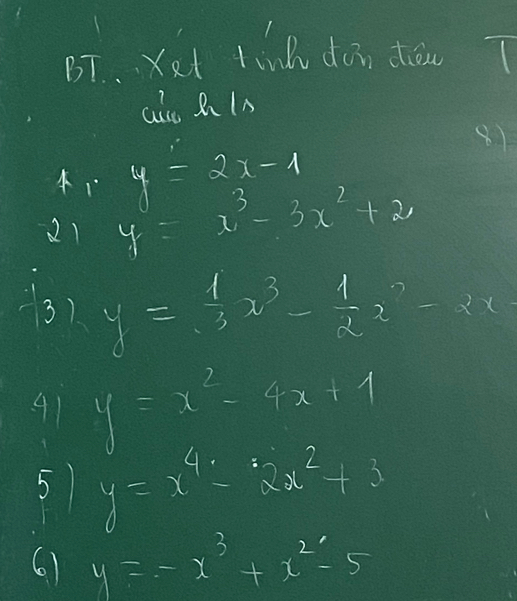 BT.. Xét tính đơn điệu T
của h/s
8)
1, y = 2x - 1
2) y = x³ - 3x² + 2
3) y = 1/3 x³ - 1/2 x² - 2x -
4) y = x² - 4x + 1
5) y = x⁴ - 2x² + 3
6) y = -x³ + x² - 5